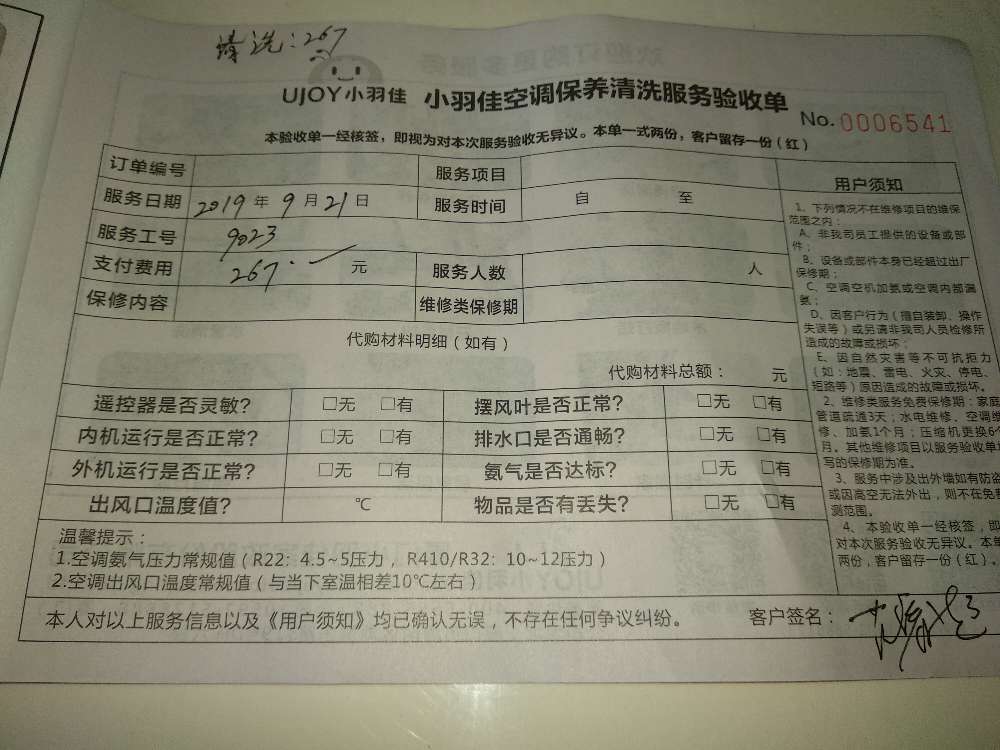 清洗:267
UJOY小羽佳 小羽佳空调保养清洗服务验收单
No.0006541
本验收单一经核签，即视为对本次服务验收无异议。本单一式两份，客户留存一份（红）
订单编号 服务项目
服务日期 2019年9月21日 服务时间 自 至
服务工号 9023
支付费用 267. 元 服务人数 人
保修内容 维修类保修期
代购材料明细（如有）
代购材料总额： 元
遥控器是否灵敏？ □无 □有 摆风叶是否正常？ □无 □有
内机运行是否正常？ □无 □有 排水口是否通畅？ □无 □有
外机运行是否正常？ □无 □有 氨气是否达标？ □无 □有
出风口温度值？ ℃ 物品是否有丢失？ □无 □有
温馨提示：
1.空调氨气压力常规值（R22：4.5~5压力，R410/R32：10~12压力）
2.空调出风口温度常规值（与当下室温相差10℃左右）
本人对以上服务信息以及《用户须知》均已确认无误，不存在任何争议纠纷。 客户签名：
用户须知
1、下列情况不在维修项目的维保
范围之内：
A、非我司员工提供的设备或部
件；
B、设备或部件本身已经超过出厂
保修期；
C、空调空机加氨或空调内部漏
氨；
D、因客户行为（擅自装卸、操作
失误等）或另请非我司人员检修所
造成的故障或损坏；
E、因自然灾害等不可抗拒力
（如：地震、雷电、火灾、停电、
短路等）原因造成的故障或损坏。
2、维修类服务免费保修期：家庭
管道疏通3天；水电维修、空调维
修、加氨1个月；压缩机更换6个
月。其他维修项目以服务验收单
写的保修期为准。
3、服务中涉及出外墙如有防盗
或因高空无法外出，则不在免费
测范围。
4、本验收单一经核签，即
对本次服务验收无异议。本单
两份，客户留存一份（红）。